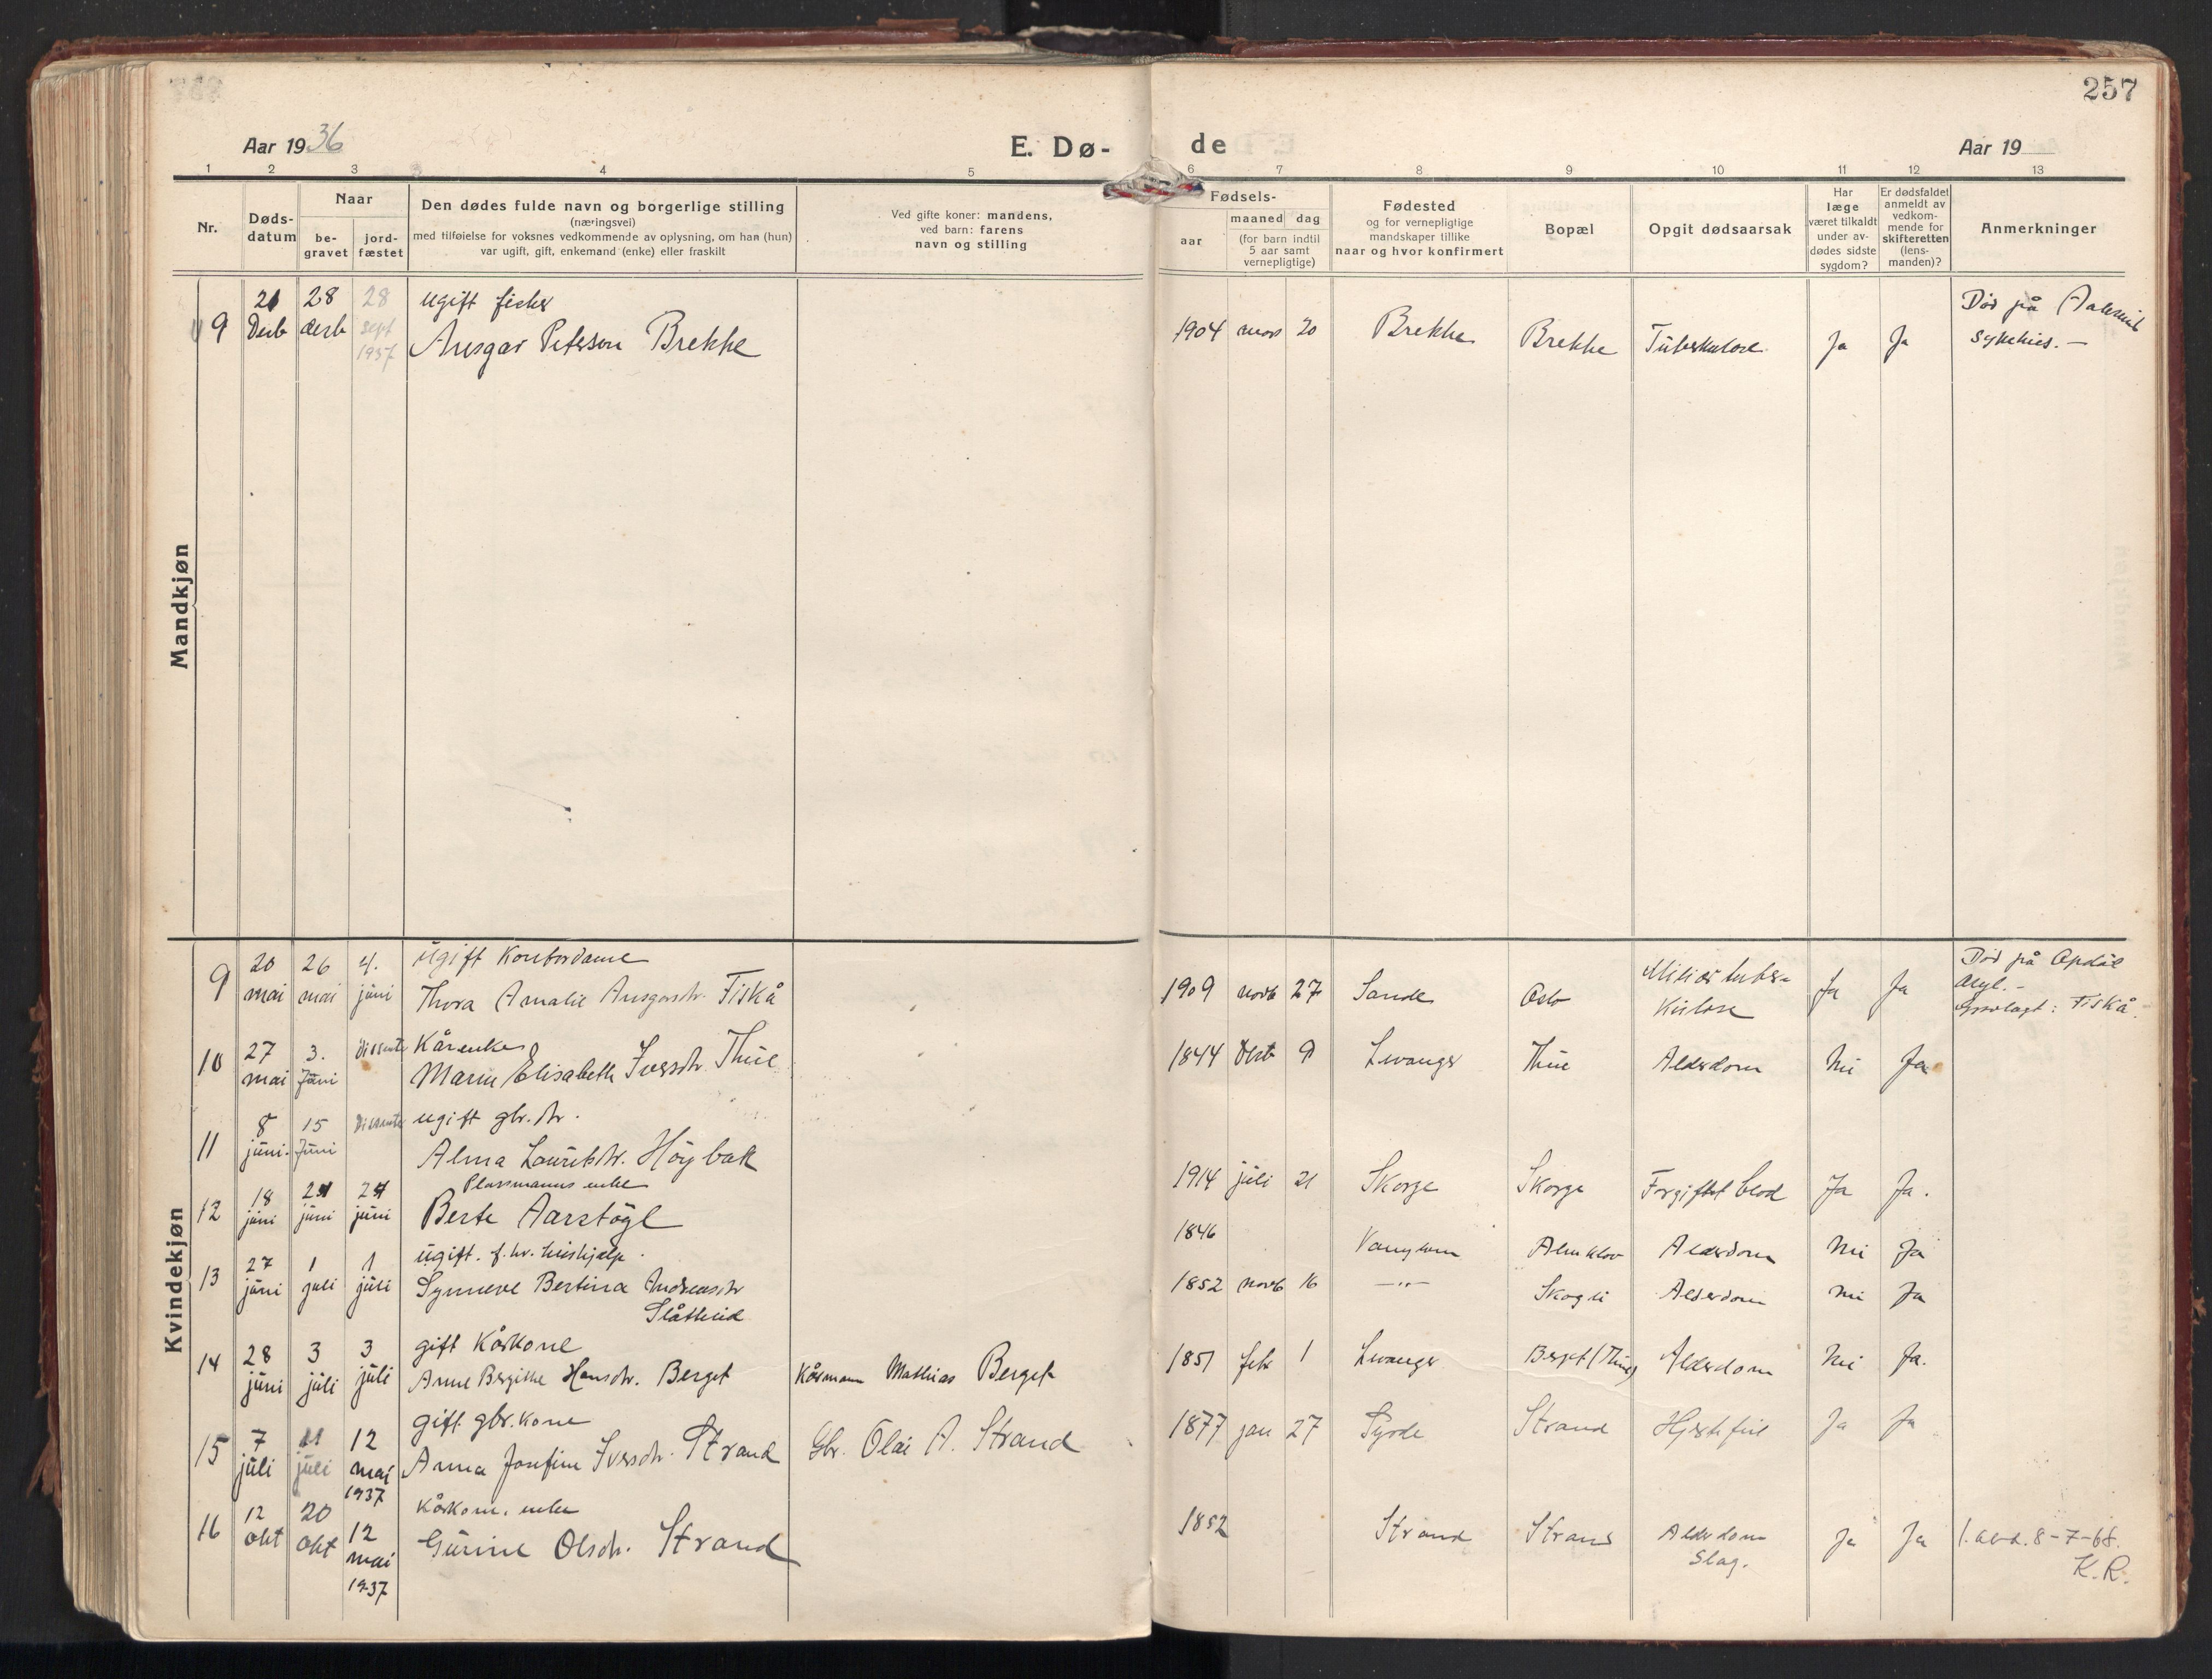 257
Aar 1936
E. Dø-
de
Aar 19
1 2 3 4 5 6 7 8 9 10 11 12 13
Nr.
Døds-
datum
Naar
be-
gravet
jord-
fæstet
Den dødes fulde navn og borgerlige stilling
(næringsvei)
med tilføielse for voksnes vedkommende av oplysning, om han (hun)
var ugift, gift, enkemand (enke) eller fraskilt
Ved gifte koner: mandens,
ved barn: farens
navn og stilling
Fødsels-
aar
maaned dag
(for barn indtil
5 aar samt
vernepligtige)
Fødested
og for vernepligtige
mandskaper tillike
naar og hvor konfirmert
Bopæl
Opgit dødsaarsak
Har
læge
været tilkaldt
under av-
dødes sidste
sygdom?
Er dødsfaldet
anmeldt av
vedkom-
mende for
skifteretten
(lens-
manden)?
Anmerkninger
Mandkjøn
9
21
Desb
28
desb
28
sept
1937
ugift fisker
Ansgar Petersen Brekke
1904 mars 20
Brekke
Brekke
Tuberkulose
Ja
Ja
Død på Aalesund
Sykehus. —
Kvindekjøn
9
20
mai
26
mai
4.
juni
ugift Kontordame
Thora Amalie Ansgarsdr. Fiskå
1909 novb 27
Sande
Oslo
Miliær tuber-
kulose
Ja
Ja
Død på
Gravlagt: Fiskå.
10
27
mai
3.
Juni
Dissenter
Kårenke
Marie Elisabeth Iversdr. Thue
1844 9
Lvanger
Thue
Alderdom
Nei
Ja
11
8
juni.
15
Juni
Dissenter
ugift gbr. dtr.
Alma Lauritsdtr. Höybak
1914 juli 21
Skorge
Skorge
Forgiftet blod
Ja
Ja.
12
18
juni
21
juni
21
juni
Plassmanns enke
Berte Aarstögl
1846
Vanylven
Almklov
Alderdom
Nei
Ja
13
27
juni
1
juli
1
juli
ugift. f. hv. hushjælp.
Synneve Bertina Andreasdtr
Slåttheid
1852 novb 16
—"—
Skogli
Alderdom
Nei
Ja
14
28
juni
3
juli
3
juli
gift Kårkone
Anne Bergitte Hansdtr. Berget
Kårmann Mathias Berget
1851 feb 1
Lvanger
Berget (Thue)
Alderdom
Nei
Ja.
15
7
juli
11
juli
12
mai
1937
gift gbr. kone
Anna Josefine Iversdtr. Strand
Gbr. Olai A. Strand
1877 jan 27
Syvde
Strand
Hjertefeil
Ja
Ja
16
12
okt
20
okt
12
mai
1937
Kårkone, enke
Gurine Olsdr. Strand
1852
Strand
Strand
Alderdom
Slag.
Ja
Ja
8-7-68.
K.R.